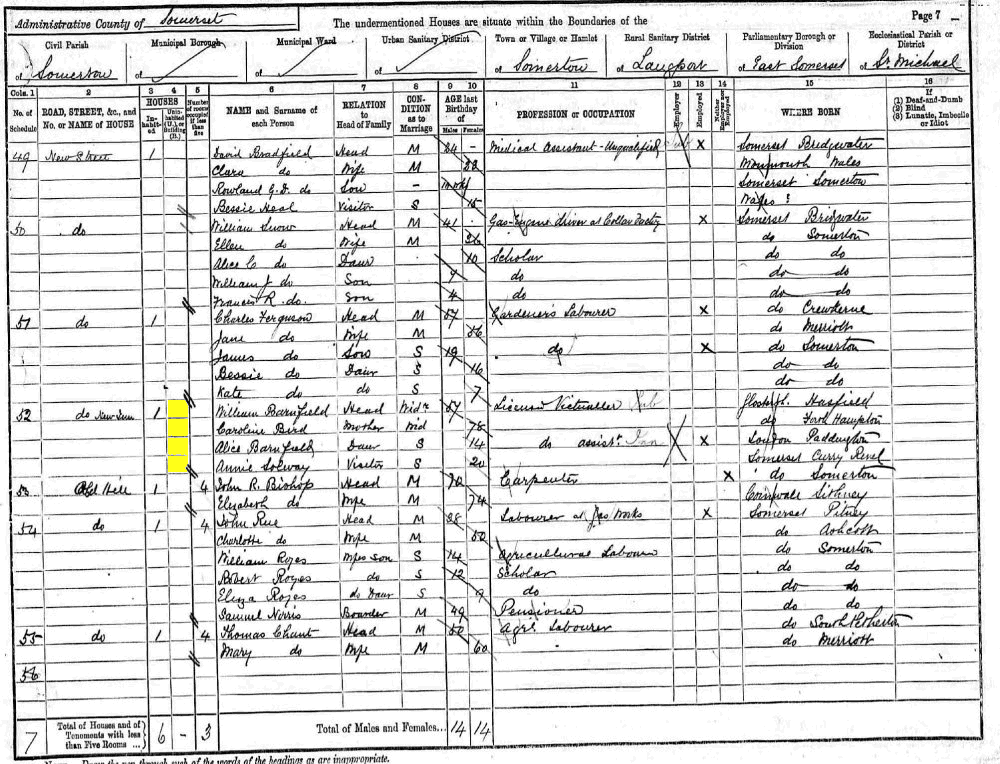 Administrative County of Somerset The undermentioned Houses are situate within the Boundaries of the Page 7
Civil Parish Municipal Borough Municipal Ward Urban Sanitary District Town or Village or Hamlet Rural Sanitary District Parliamentary Borough or Division Ecclesiastical Parish or District
of Somerton of of of of Somerton of Langport of East Somerset of St. Michael
Cols. 1 2 3 4 5 6 7 8 9 10 11 12 13 14 15 16
No. of Schedule ROAD, STREET, &c., and No. or NAME of HOUSE HOUSES Inhabited Uninhabited (U.), or Building (B.) Number of rooms occupied if less than five NAME and Surname of each Person RELATION to Head of Family CONDITION as to Marriage AGE last Birthday of Males Females PROFESSION or OCCUPATION Employer Employed Neither Employer nor Employed WHERE BORN If (1) Deaf-and-Dumb (2) Blind (3) Lunatic, Imbecile or Idiot
49 New Street 1 David Bradfield Head M 24 - Medical Assistant - Unqualified X Somerset Bridgwater
Clara do Wife M Monmouth Wales
Rowland G. D. do Son - Somerset Somerton
Bessie Heal Visitor S 15 Wales ?
50 do William Snow Head M 41 Gas-Engine driver at Collar Factory X Somerset Bridgwater
Ellen do Wife M do Somerton
Alice C do Daur 10 Scholar do do
William J do Son do do do
Francis R. do Son 4 do do do
51 do 1 Charles Ferguson Head M 57 Gardener's Labourer X do Crewkerne
Jane do Wife M 56 do Merriott
James do Son S 19 do X do Somerton
Bessie do Daur S 16 do do
Kate do do S 7 do do
52 do New Inn 1 William Barnfield Head Widr 57 Licensed Victualler Pub Hasfield
Caroline Bird Mother Wid 78 do Forth Hampton
Alice Barnfield Daur S 14 do assist. Inn X London Paddington
Annie Solway Visitor S 20 Somerset Curry Revel
53 Hill 1 4 John R. Bishop Head M 70 Carpenter X do Somerton
Elizabeth do Wife M 74 Cornwall Sithney
54 do 1 4 John Rue Head M 38 Labourer at Gas Works X Somerset Pitney
Charlotte do Wife M 50 do Ashcott
William Royes Wifes Son S 14 Agricultural Labourer do Somerton
Robert Royes do S 12 Scholar do do
Eliza Royes do Daur S 9 do do do
Samuel Norris Boarder M 49 Pensioner do do
55 do 1 4 Thomas Chant Head M 50 Agrl Labourer do South Petherton
Mary do Wife M 60 do Merriott
56
7 Total of Houses and of Tenements with less than Five Rooms ... 6 - 3 Total of Males and Females... 14 14